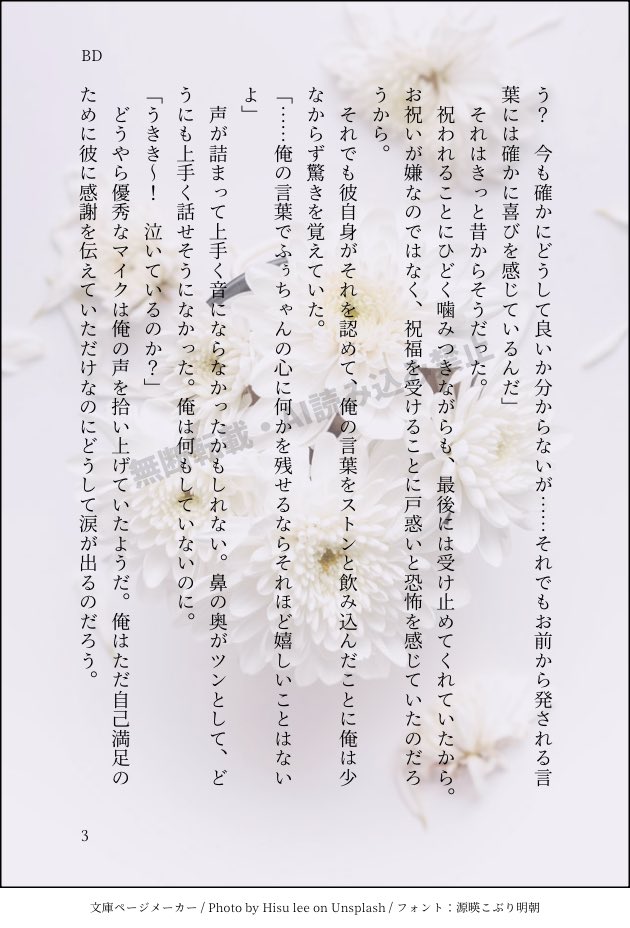 BD
う？　今も確かにどうして良いか分からないが……それでもお前から発される言
葉には確かに喜びを感じているんだ」
　それはきっと昔からそうだった。
　祝われることにひどく噛みつきながらも、最後には受け止めてくれていたから。
お祝いが嫌なのではなく、祝福を受けることに戸惑いと恐怖を感じていたのだろ
うから。
　それでも彼自身がそれを認めて、俺の言葉をストンと飲み込んだことに俺は少
なからず驚きを覚えていた。
「……俺の言葉でふぅちゃんの心に何かを残せるならそれほど嬉しいことはない
よ」
　声が詰まって上手く音にならなかったかもしれない。鼻の奥がツンとして、ど
うにも上手く話せそうになかった。俺は何もしていないのに。
「うきき〜！　泣いているのか？」
　どうやら優秀なマイクは俺の声を拾い上げていたようだ。俺はただ自己満足の
ために彼に感謝を伝えていただけなのにどうして涙が出るのだろう。
無断転載・AI読み込み禁止
3
文庫ページメーカー / Photo by Hisu lee on Unsplash / フォント：源暎こぶり明朝